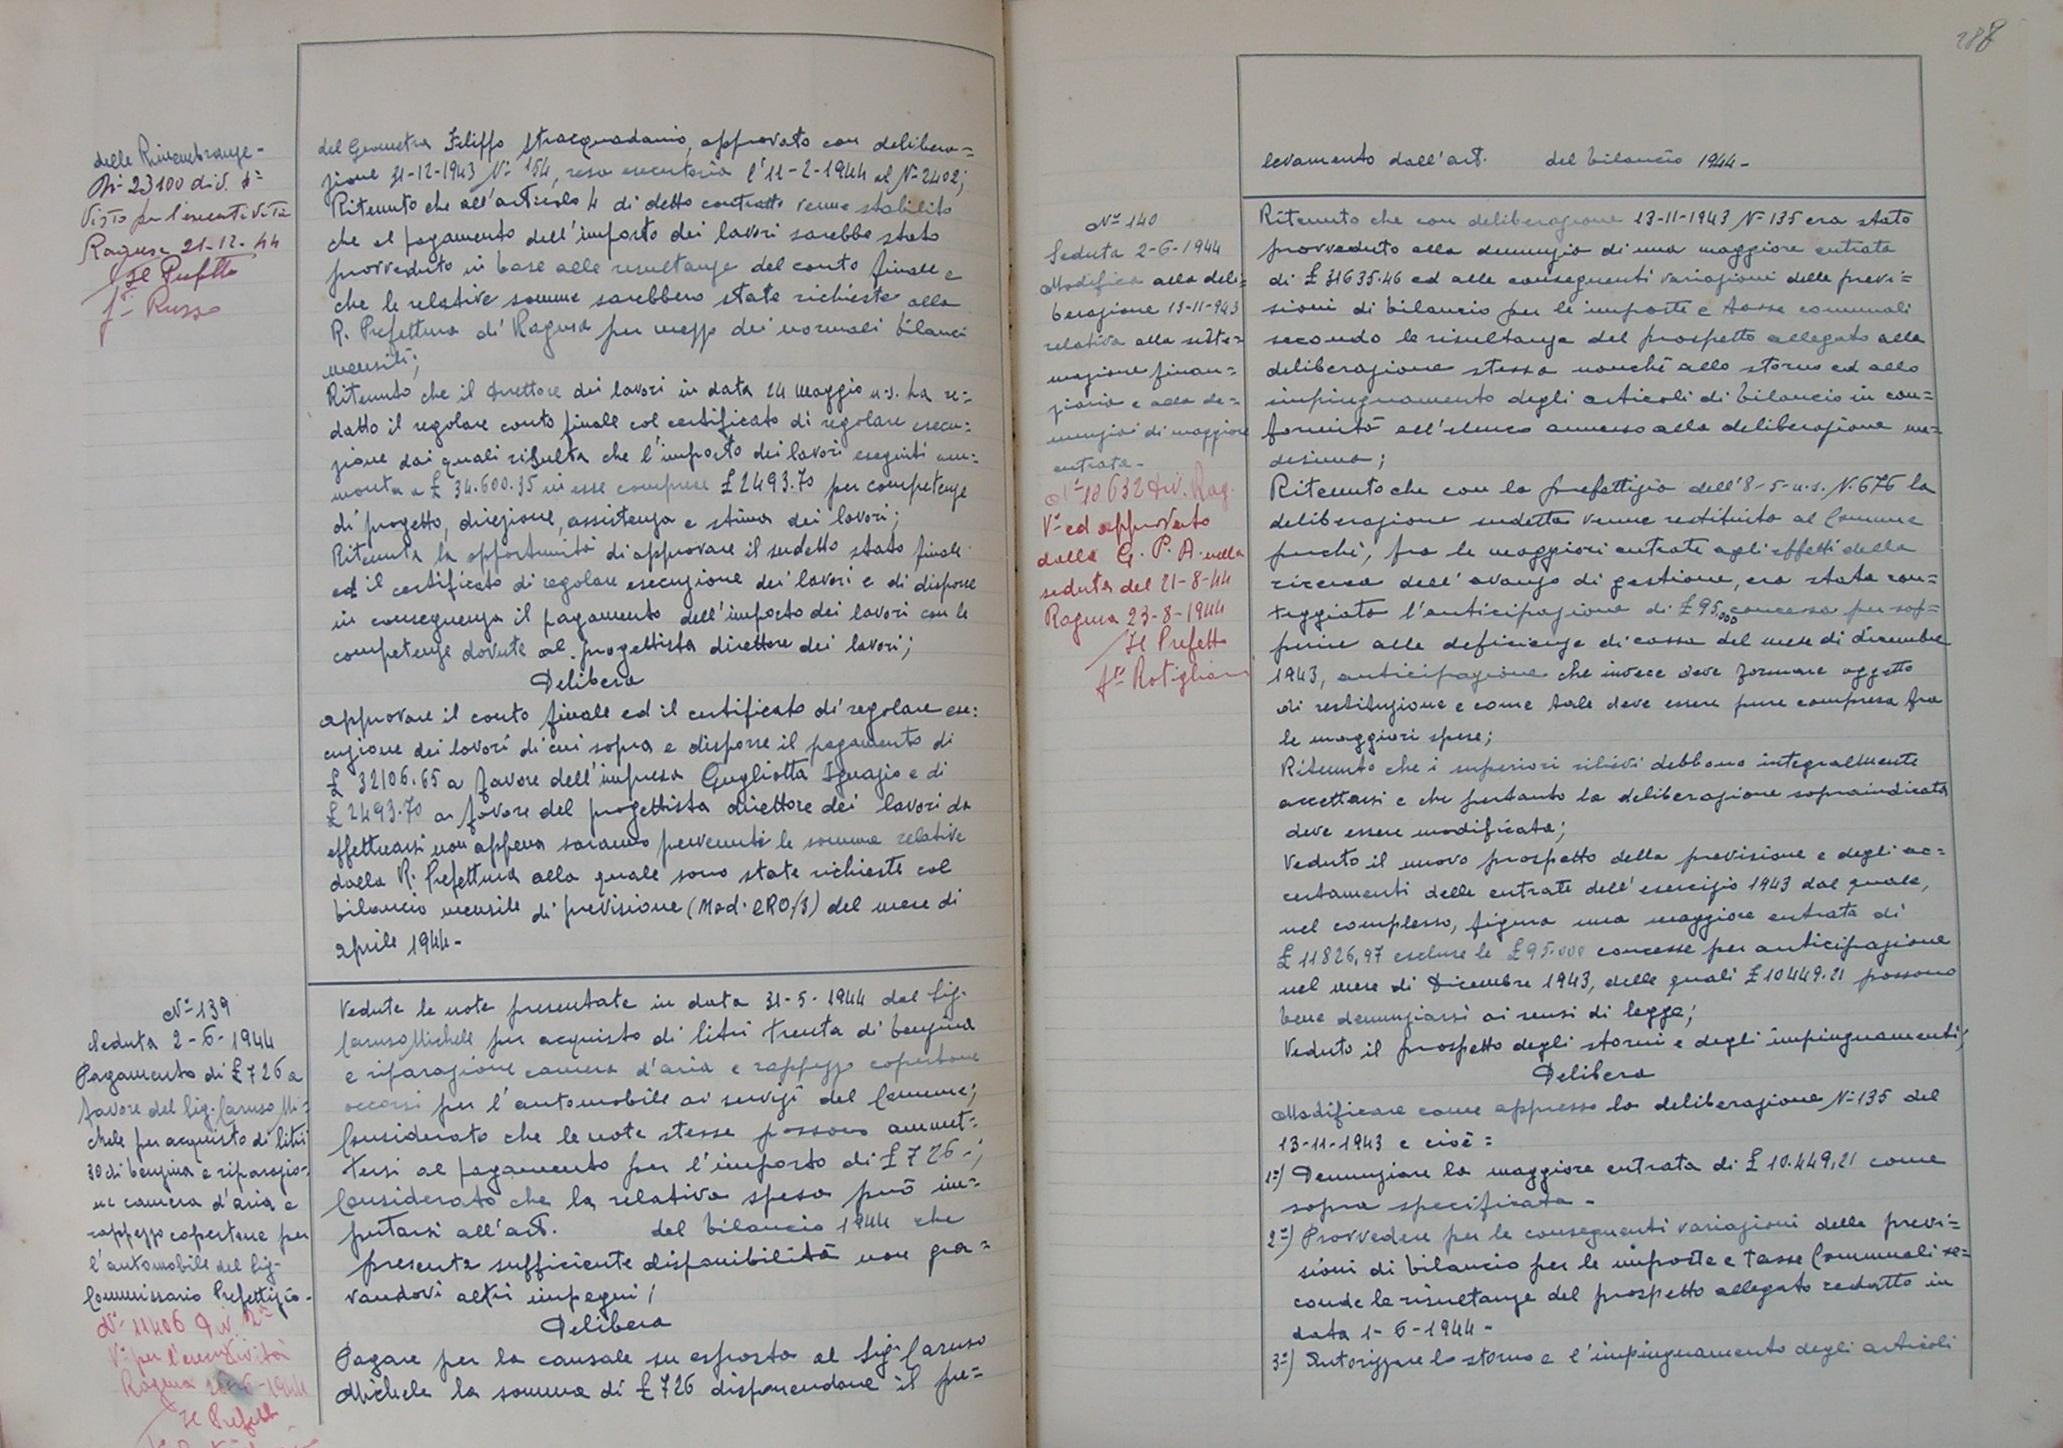 delle Rimembranze -
N° 23100 div. 4ª
Visto per l'esecutività
Ragusa 21-12-44
Il Prefetto
fº Russo
del Geometra Filiffo Stracquadanio, approvato con delibera=
zione 31-12-1943 N° 154, resa esecutoria l'11-2-1944 al N° 2402;
Ritenuto che all'articolo 4 di detto contratto venne stabilito
che al pagamento dell'importo dei lavori sarebbe stato
provveduto in base alle resultanze del conto finale e
che le relative somme sarebbero state richieste alla
R. Prefettura di Ragusa per mezzo dei normali bilanci
mensili;
Ritenuto che il direttore dei lavori in data 24 maggio u.s. ha re=
datto il regolare conto finale col certificato di regolare esecu=
zione dai quali risulta che l'importo dei lavori eseguiti am=
monta a £ 34.600.35 in esse comprese £ 2493.70 per competenze
di progetto, direzione, assistenza e stima dei lavori;
Ritenuta la opportunità di approvare il sudetto stato finale
ed il certificato di regolare esecuzione dei lavori e di disporre
in conseguenza il pagamento dell'importo dei lavori con le
competenze dovute al progettista direttore dei lavori;
Delibera
approvare il conto finale ed il certificato di regolare ese:
cuzione dei lavori di cui sopra e disporre il pagamento di
£ 32106.65 a favore dell'impresa Gugliotta Ignazio e di
£ 2493.70 a favore del progettista direttore dei lavori da
effettuarsi non appena saranno pervenute le somme relative
dalla R. Prefettura alla quale sono state richieste col
bilancio mensile di previsione (Mod. CRO/3) del mese di
aprile 1944-
N° 139
Seduta 2-6-1944
Pagamento di £ 726 a
favore del Sig. Caruso Mi=
chele per acquisto di litri
30 di benzina e riparazio=
ne camera d'aria e
rappezzo copertone per
l'automobile del Sig.
Commissario Prefettizio-
N° 11406 Div. 2ª
Vº per l'esecutività
Ragusa -6-1944
Il Prefetto
Vedute le note presentate in data 31-5-1944 dal Sig.
Caruso Michele per acquisto di litri trenta di benzina
e riparazione camera d'aria e rappezzo copertone
occorsi per l'automobile ai servizi del Comune;
Considerato che le note stesse possono ammet=
tersi al pagamento per l'importo di £ 726-;
Considerato che la relativa spesa può im=
putarsi all'art. del bilancio 1944 che
presenta sufficiente disponibilità non gra=
vandovi altri impegni;
Delibera
Pagare per la causale su esposta al Sig. Caruso
Michele la somma di £ 726 disponendone il pre=
188
levamento dall'art. del bilancio 1944-
N° 140
Seduta 2-6-1944
Modifica alla deli=
berazione 13-11-943
relativa alla siste=
mazione finan=
ziaria e alla de=
nunzia di maggiore
entrata-
N° 18632 Div. Rag.
Vº ed approvato
dalla G. P. A. nella
seduta del 21-8-44
Ragusa 23-8-1944
Il Prefetto
fto Rotigliani
Ritenuto che con deliberazione 13-11-1943 N° 135 era stato
provveduto alla denunzia di una maggiore entrata
di £ 31635.46 ed alle conseguenti variazioni delle previ=
sioni di bilancio per le imposte e tasse comunali
secondo le risultanze del prospetto allegato alla
deliberazione stessa nonché allo storno ed allo
impinguamento degli articoli di bilancio in con=
formità all'elenco annesso alla deliberazione me=
desima;
Ritenuto che con la prefettizia dell'8-5-u.s. N. 676 la
deliberazione sudetta venne restituita al Comune
perché, fra le maggiori entrate agli effetti della
ricerca dell'avanzo di gestione, era stata con=
teggiata l'anticipazione di £ 95.000 concessa per sop=
perire alle deficienze di cassa del mese di dicembre
1943, anticipazione che invece deve formare oggetto
di restituzione e come tale deve essere pure compresa fra
le maggiori spese;
Ritenuto che i superiori rilievi debbono integralmente
accettarsi e che pertanto la deliberazione sopraindicata
deve essere modificata;
Veduto il nuovo prospetto della previsione e degli ac=
certamenti delle entrate dell'esercizio 1943 dal quale,
nel complesso, figura una maggiore entrata di
£ 11826,97 escluse le £ 95.000 concesse per anticipazione
nel mese di Dicembre 1943, delle quali £ 10449.21 possono
bene denunziarsi ai sensi di legge;
Veduto il prospetto degli storni e degli impinguamenti;
Delibera
Modificare come appresso la deliberazione N° 135 del
13-11-1943 e cioè =
1°) Denunziare la maggiore entrata di £ 10.449,21 come
sopra specificata-
2°) Provvedere per le conseguenti variazioni delle previ=
sioni di bilancio per le imposte e tasse Communali se=
condo le risultanze del prospetto allegato redatto in
data 1-6-1944-
3°) Autorizzare lo storno e l'impinguamento degli articoli